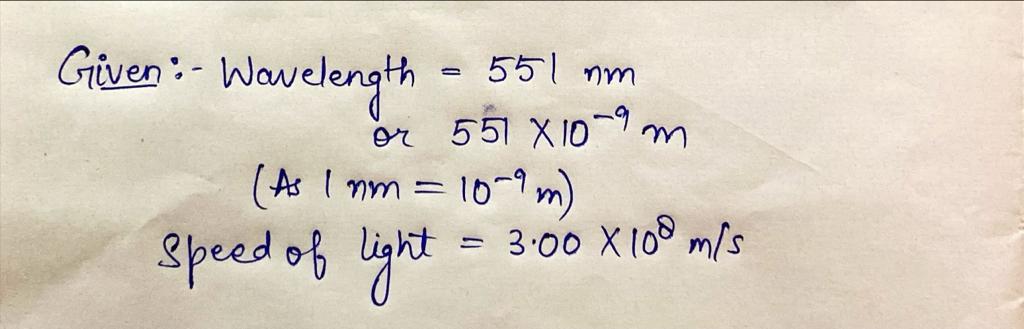 Given :- Wavelength = 551 nm
or 551 X10⁻⁹ m
(As 1 nm = 10⁻⁹ m)
Speed of light = 3.00 X10⁸ m/s